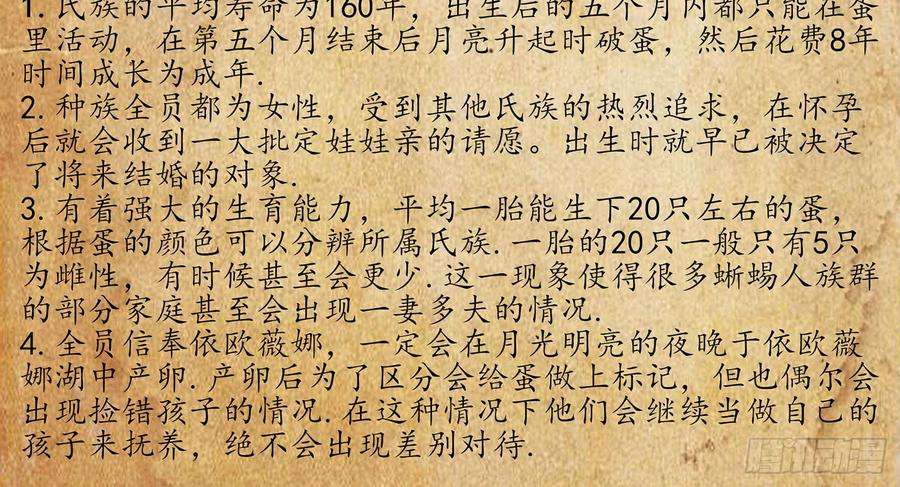 1. 氏族的平均寿命为160年，出生后的五个月内都只能在蛋
里活动，在第五个月结束后月亮升起时破蛋，然后花费8年
时间成长为成年.
2. 种族全员都为女性，受到其他氏族的热烈追求，在怀孕
后就会收到一大批定娃娃亲的请愿。出生时就早已被决定
了将来结婚的对象.
3. 有着强大的生育能力，平均一胎能生下20只左右的蛋，
根据蛋的颜色可以分辨所属氏族. 一胎的20只一般只有5只
为雌性，有时候甚至会更少. 这一现象使得很多蜥蜴人族群
的部分家庭甚至会出现一妻多夫的情况.
4. 全员信奉依欧薇娜，一定会在月光明亮的夜晚于依欧薇
娜湖中产卵. 产卵后为了区分会给蛋做上标记，但也偶尔会
出现捡错孩子的情况. 在这种情况下他们会继续当做自己的
孩子来抚养，绝不会出现差别对待.
腾讯动漫